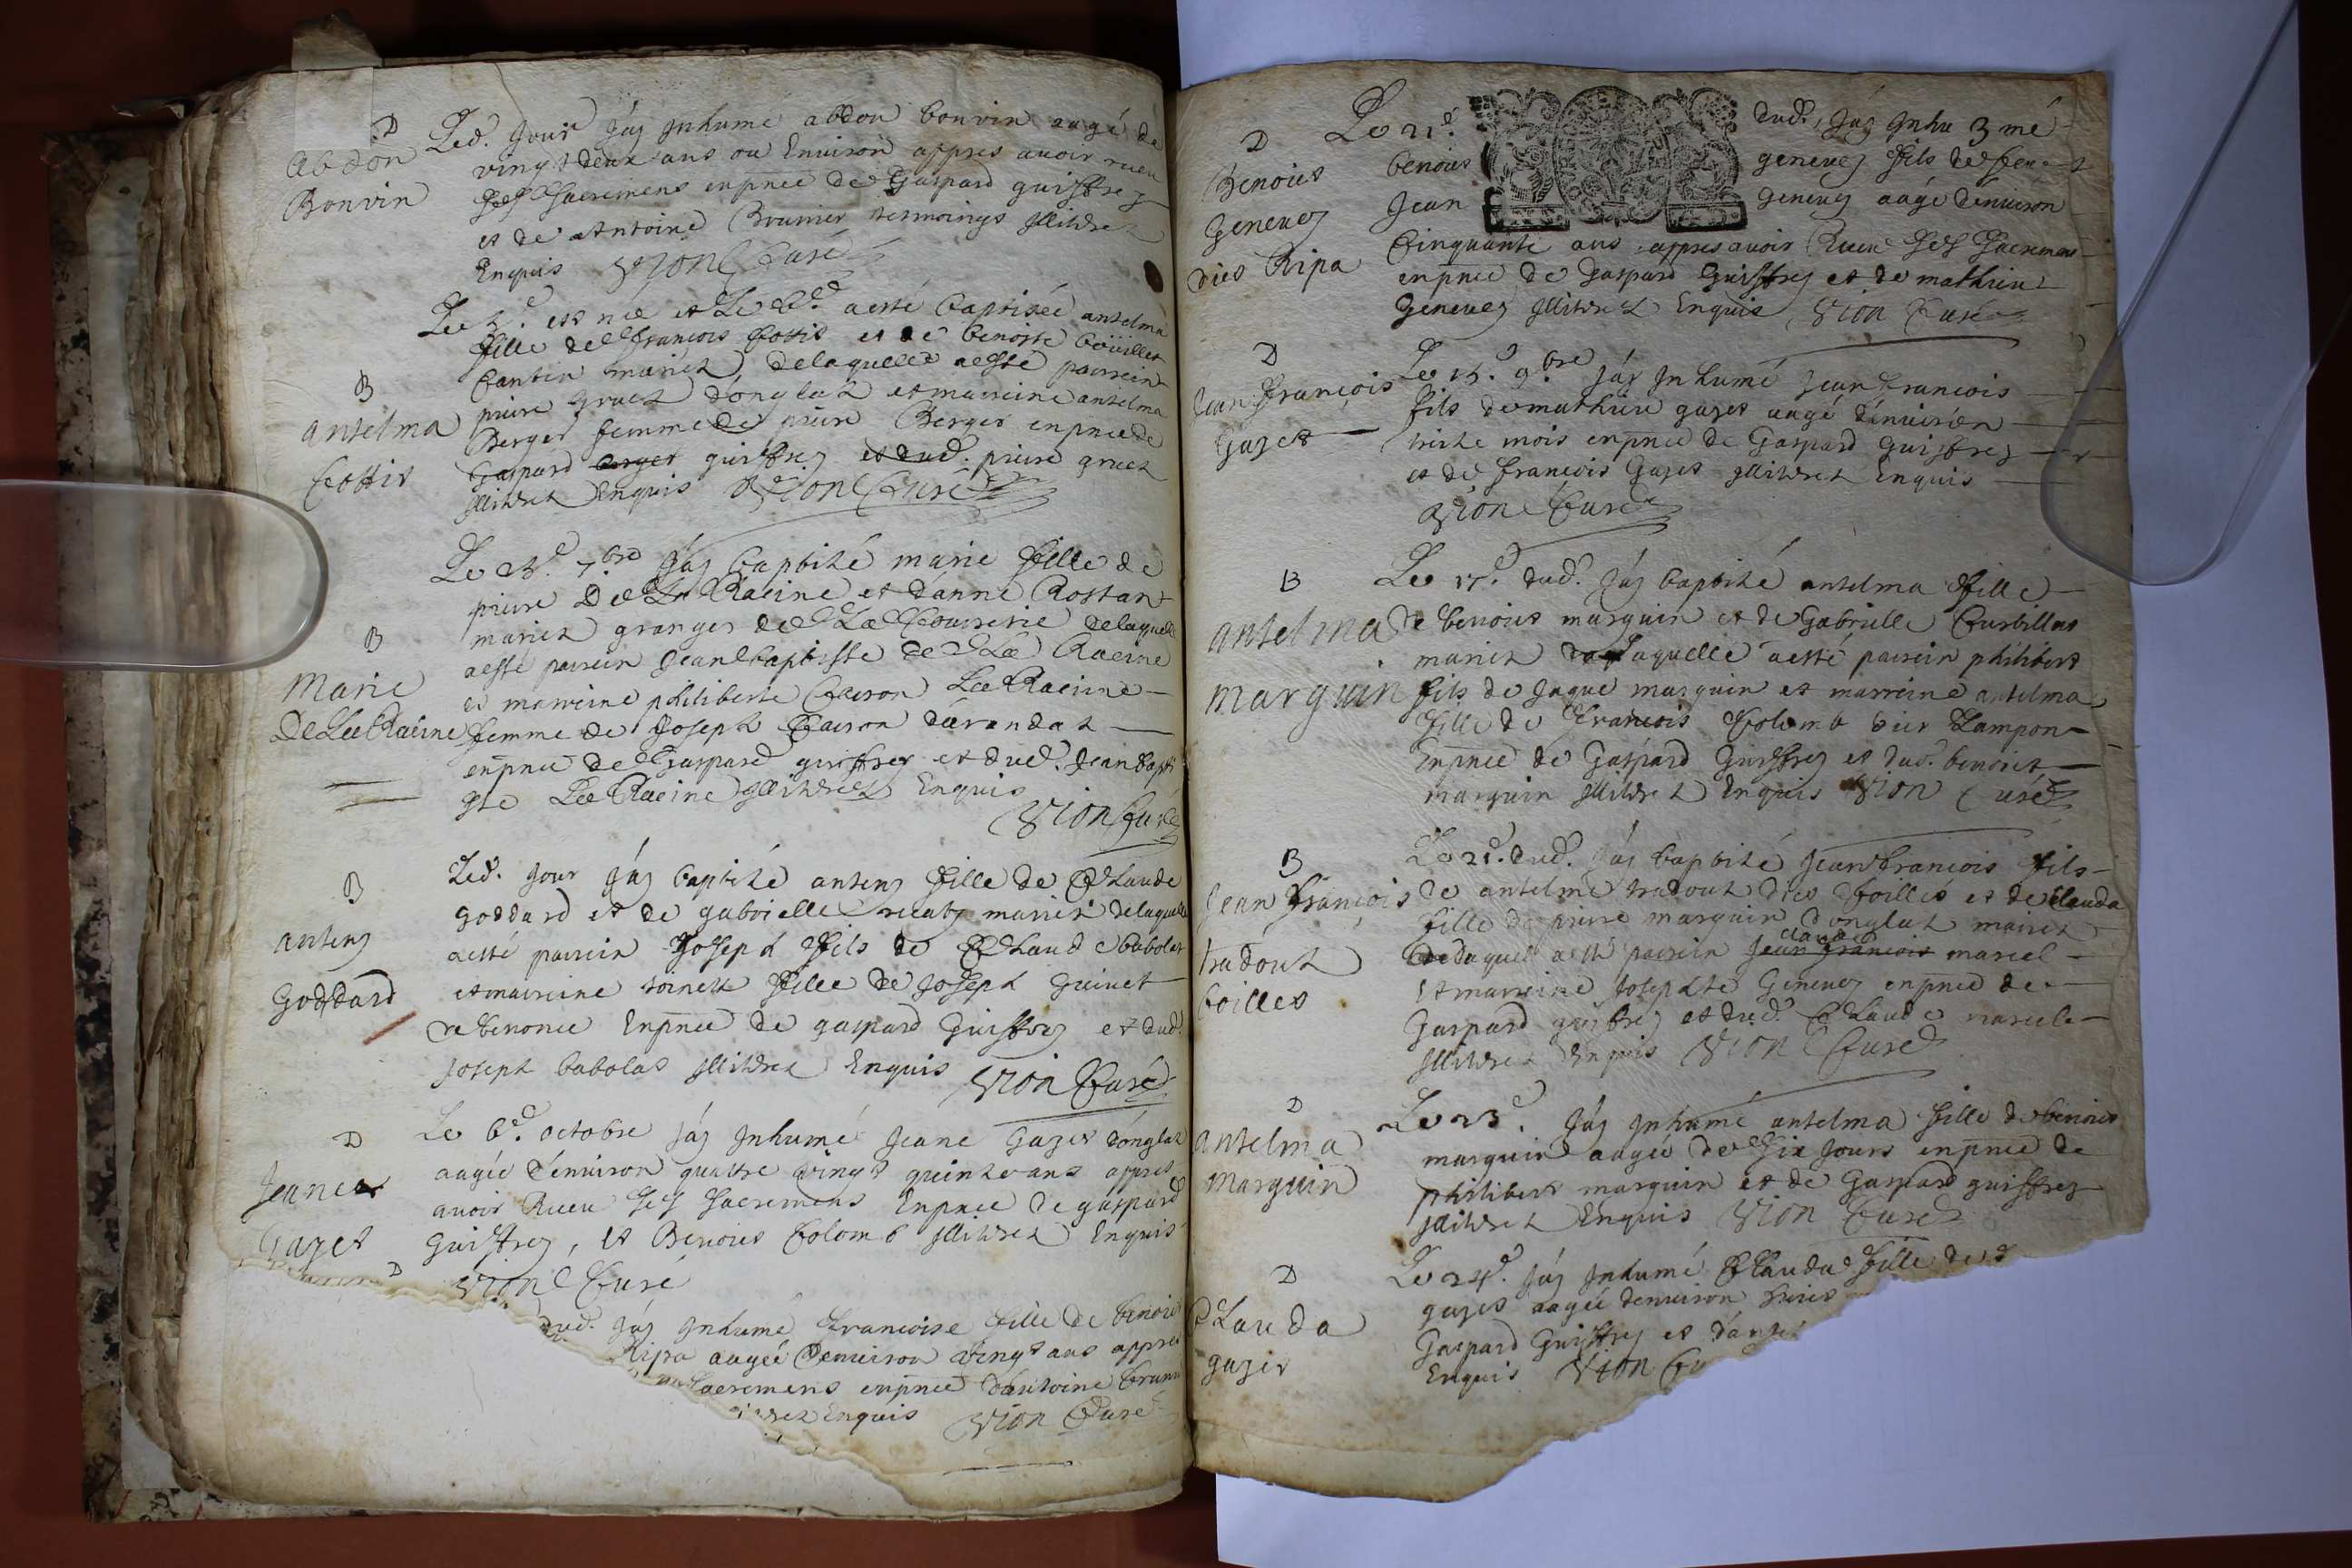 D
Abdon
Bonvin
Led. Jour Jáy Inhumé abdon bonvin aagé de
vingt deux ans ou Environ appres avoir receu
Ses Sacremens enpnce de Gaspard guiffrey
et de Antoine Brunier tesmoings Illitrez
Enquis Vion Curé
B
antelma
Cottit
est née et Le aesté baptisée antelma
fille de francois Cottit et de benoiste
mariez delaquelle aesté parrein
pierre gruet dónglas et marreine antelma
Berger femme de pierre Berger enpnce de
Gaspard berger guiffrey et dud. pierre gruet
Illitrez Enquis Vion Curé
B
Marie
De La Racine
Le 7bre Jáy baptisé marie fille de
pierre De La Racine et dánne Rostan
mariez granger de La delaquelle
aesté parrein Jean baptiste de La Racine
et marreine philiberte La Racine
femme de Joseph
enpnce de Gaspard guiffrey et dud. Jean bapti
ste La Racine Illitrez Enquis
Vion Curé
B
anteny
Goddard
Led. Jour Jáy baptisé anteny fille de Claude
goddard et de gabrielle mariez delaquelle
aesté parrein Joseph fils de Claude babolas
et marreine fille de Joseph guinet
Enpnce de gaspard Guiffrey et dud.
Joseph babolas Illitrez Enquis Vion Curé
D
Jeane
Gazet
Le 6e. octobre Jáy Inhumé Jeane Gazet dónglas
aagée dénviron quattre vingt quinze ans appres
avoir Receu Ses Sacremens Enpnce de gaspard
Guiffrey, et Benoist Colomb Illitrez Enquis
Vion Curé
D
dud. Jáy Inhumé francoise fille de benoist
Ripa aagée Denviron vingt ans appres
Sacremens enpnce dántoine brunier
Enquis Vion Curé
D
Benoist
Genevey
dict Ripa
Le 21e. dud. Jáy Inhu 3 mé
benoist genevey fils de feu
Jean genevey aágé dénviron
Cinquante ans appres avoir Receu Ses Sacremens
enpnce de Gaspard Guiffrey et de mathieu
Genevey Illitrez Enquis Vion Curé
D
Jean François
Gazet
Le 9bre Jáy Inhumé Jean francois
fils de mathieu gazet aagé dénviron
treize mois enpnce de Gaspard Guiffrey
et de francois Gazet Illitrez Enquis
Vion Curé
B
antelma
marguin
Le 17e. dud. Jáy baptisé antelma fille
de benoist marguin et de Gabrielle Curtillat
mariez de Laquelle aesté parrein philibert
fils de Jaque marguin et marreine antelma
fille de francois Colomb
Enpnce de Gaspard Guiffrey et dud. benoist
marguin Illitrez Enquis Vion Curé
B
Jean françois
tradout
Coilles
Le 21e. dud. Jáy baptisé Jean francois fils
de antelme tradout dict Coilles et de Clauda
fille de pierre marguin dónglas mariez
claude
delaquelle aesté parrein Jean francois marcel
et marreine Josephte Genevey enpnce de
Gaspard guiffrey et dud. Claude marcel
Illitrez Enquis Vion Curé
D
Antelma
Marguin
Le 23e. Jáy Inhumé antelma fille de benoist
marguin aagée de Six Jours enpnce de
philibert marguin et de Gaspard guiffrey
Illitrez Enquis Vion Curé
D
Clauda
gazet
Le 24e. Jáy Inhumé Clauda fille de
gazet aagée denviron
Gaspard Guiffrey et
Enquis Vion Cu